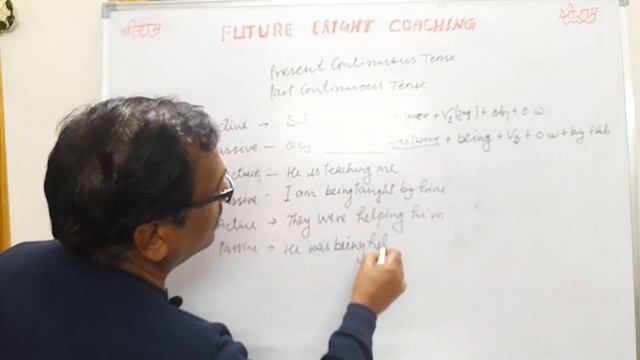 श्रीराम FUTURE BRIGHT COACHING श्रीराम
Present Continuous Tense
Past Continuous Tense
ctive → S + were + V1 (ing) + obj + O.W
assive → Obj was/were + being + V3 + O.W + by + sub
ctive — He is teaching me
assive - I am being taught by him
Active → They were helping him
Passive → He was being hel